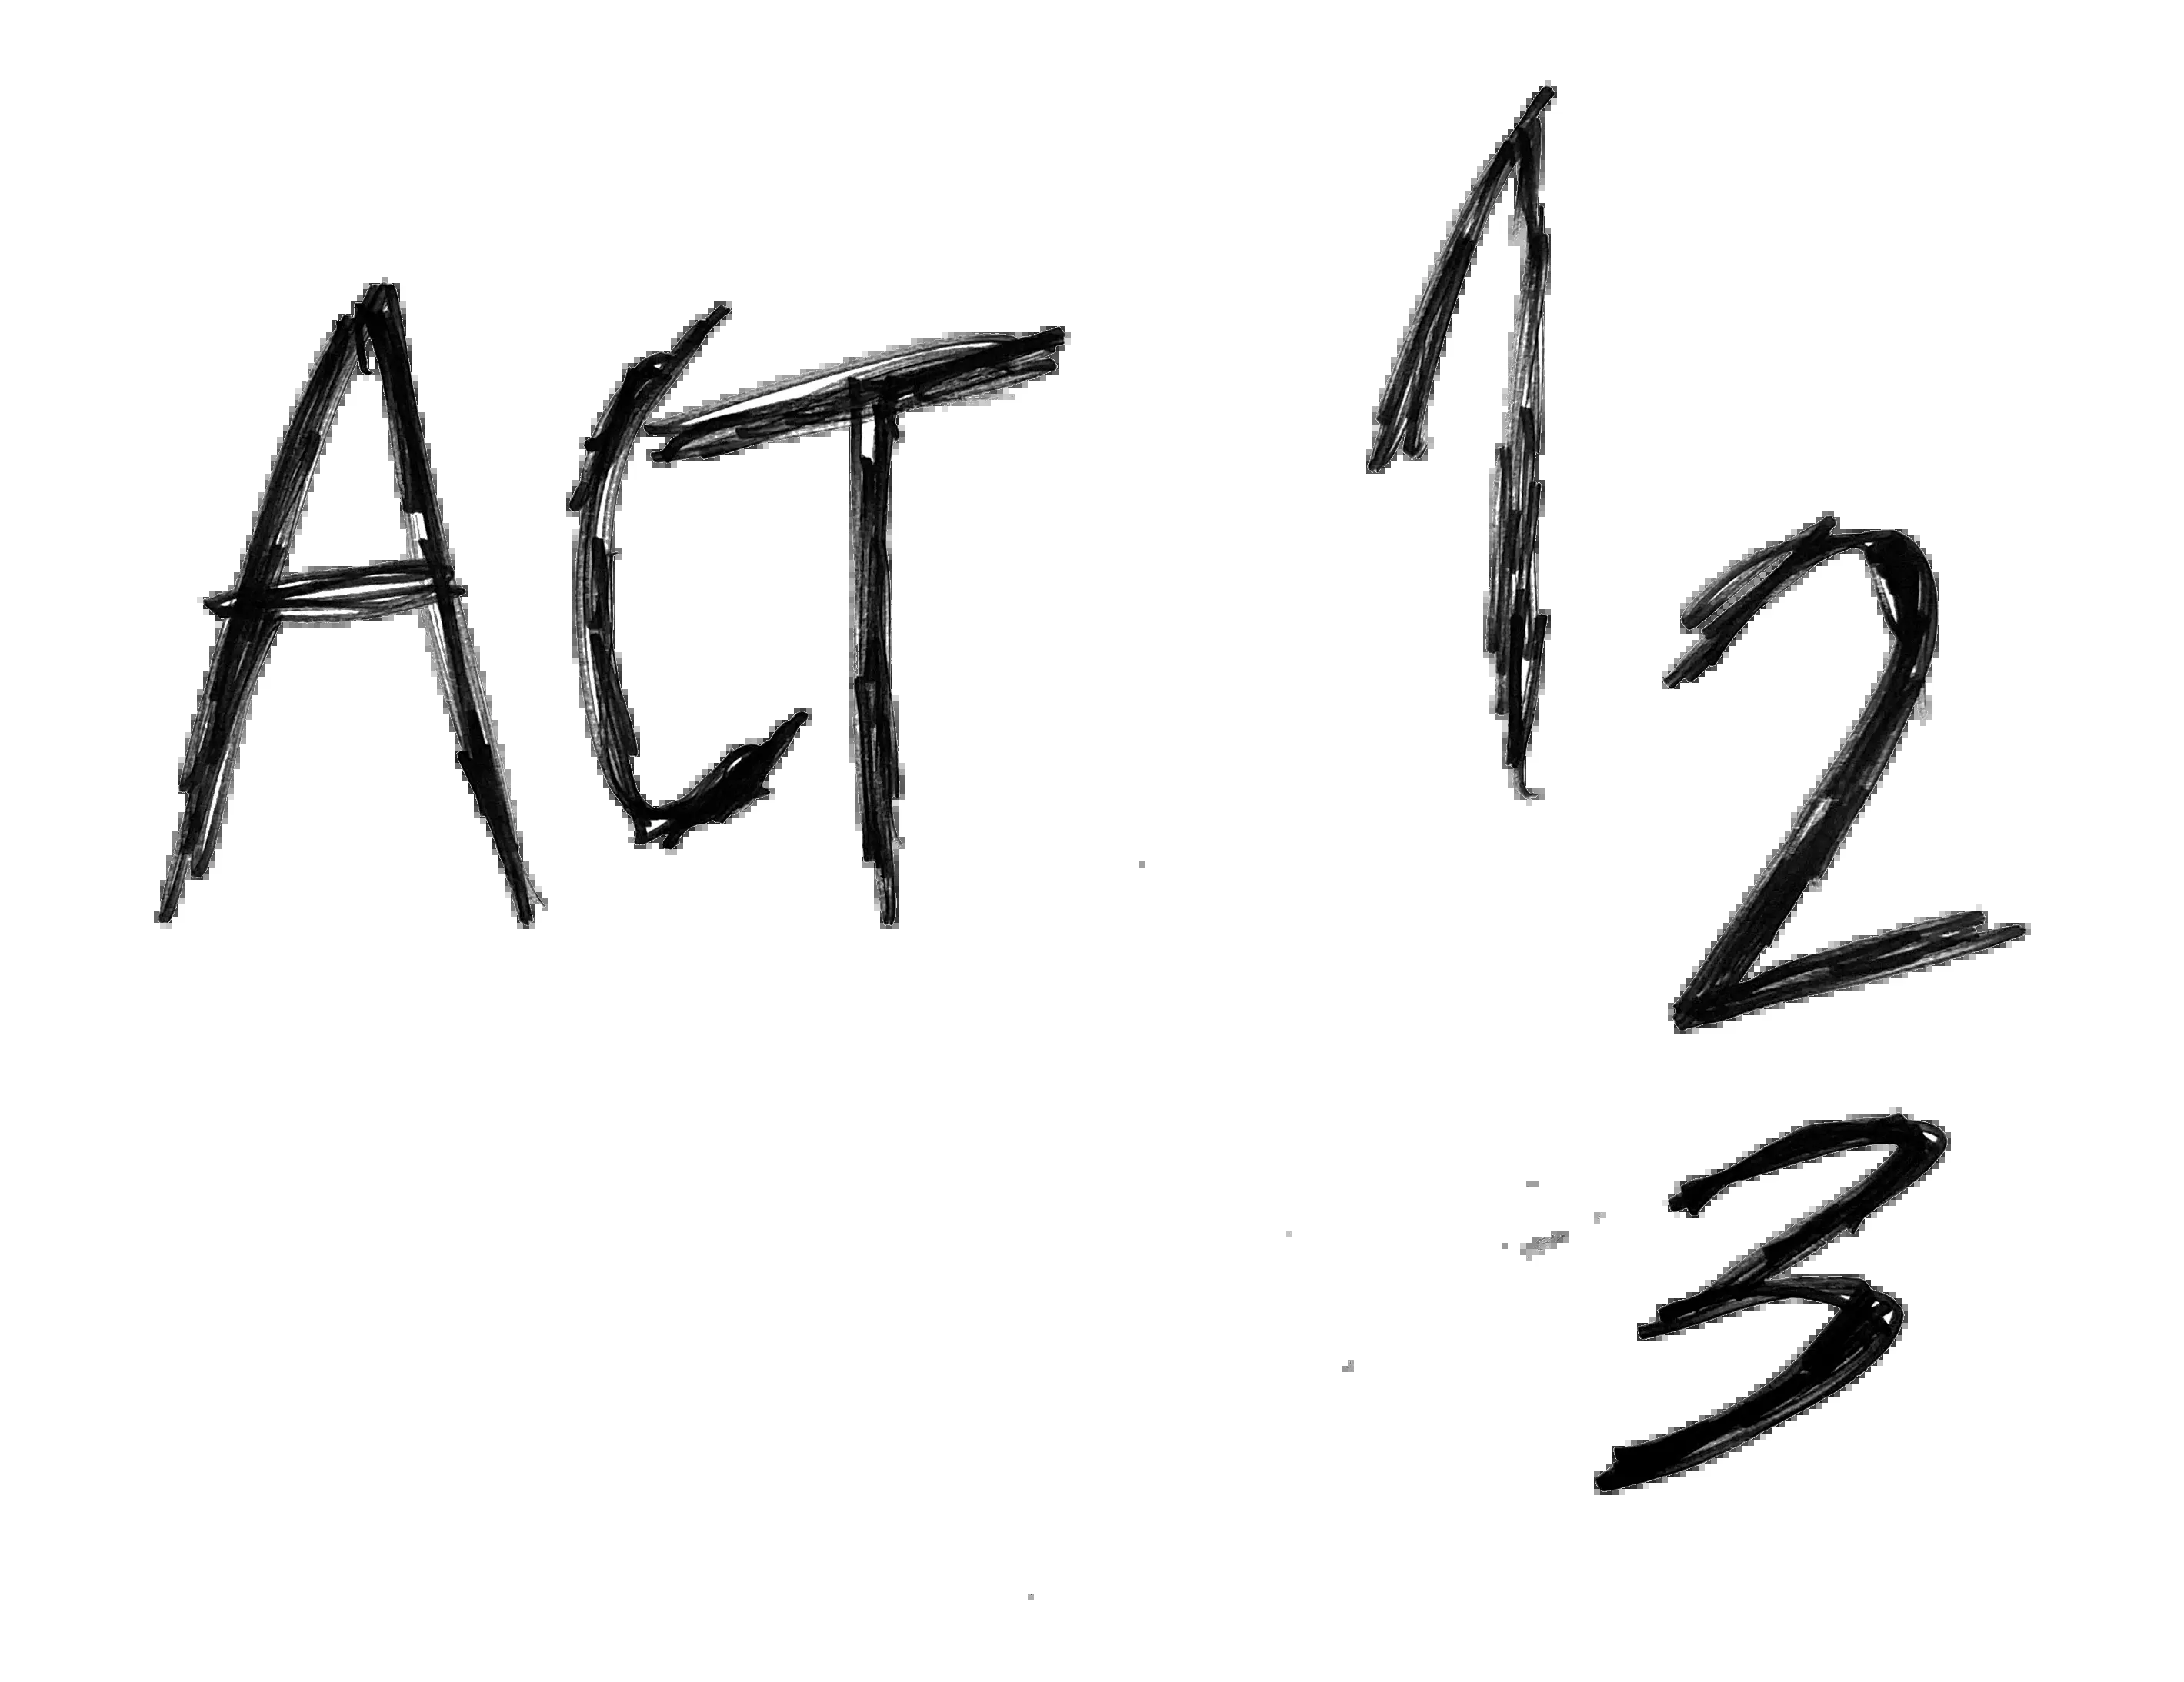 ACT 1
2
3